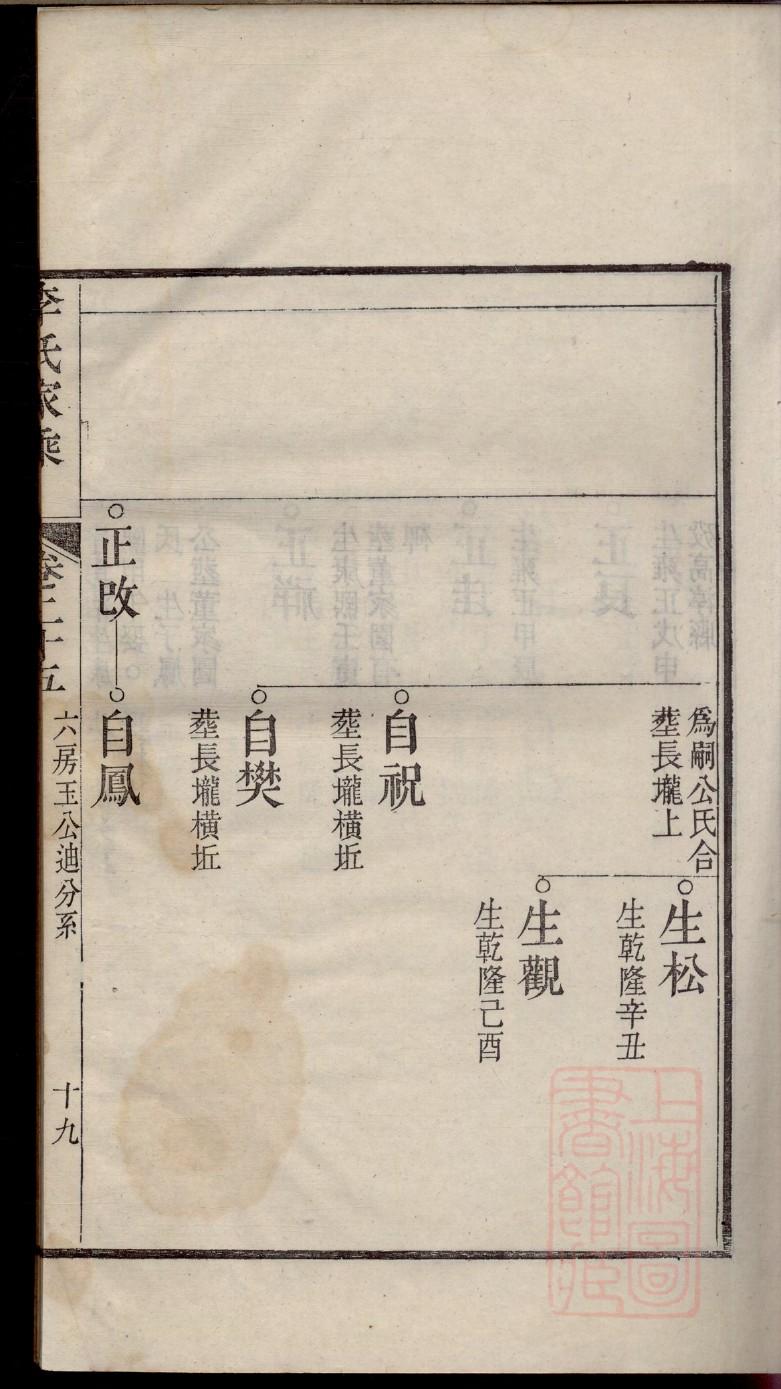 為嗣公氏合
塟長壠上
生松
生乾隆辛丑
生觀
生乾隆己酉
自祝
塟長壠橫坵
自樊
塟長壠橫坵
正改
自鳳
李氏家乘
卷二十五
六房玉公迪分系
十九
上海圖
書館藏